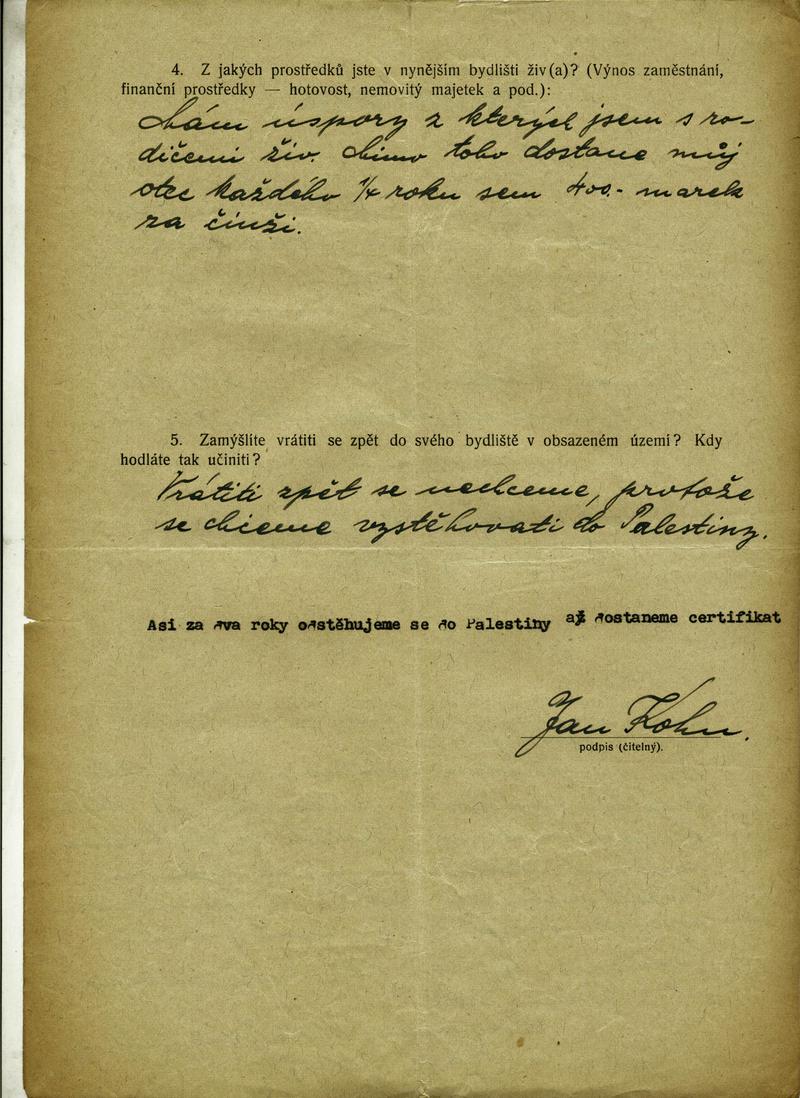 4. Z jakých prostředků jste v nynějším bydlišti živ(a)? (Výnos zaměstnání,
finanční prostředky — hotovost, nemovitý majetek a pod.):
Mám úspory z kterých jsem s ro-
dičemi živ. Mimo toho dostane můj
otec každého ¼ roku sem 400.- marek
za činži.
5. Zamýšlíte vrátiti se zpět do svého bydliště v obsazeném území? Kdy
hodláte tak učiniti?
Vrátiti zpět se nechceme, protože
se chceme vystěhovati do Palestiny.
Asi za dva roky odstěhujeme se do Palestiny až dostaneme certifikat
Jan Kohn.
podpis (čitelný).